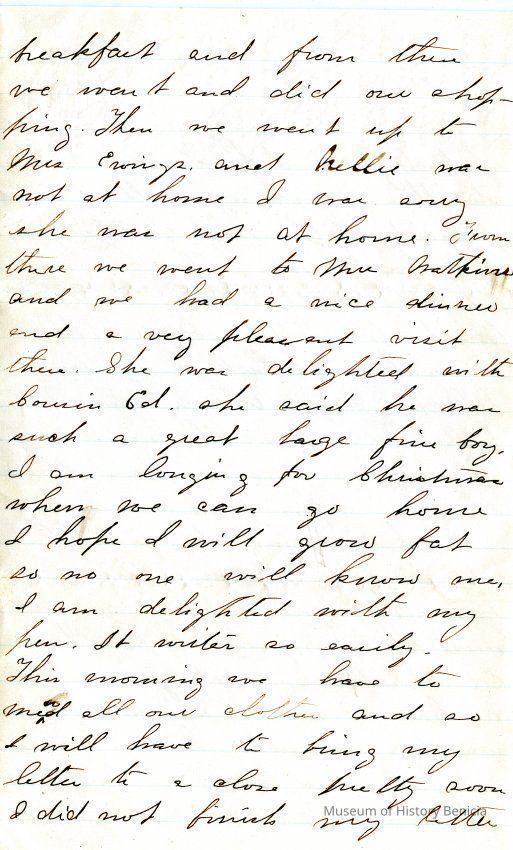 breakfast and from there
we went and did our shop-
ping. Then we went up to
Mrs Ewings. and Nellie was
not at home I was sorry
she was not at home. From
there we went to Mrs Watkins
and we had a nice dinner
and a very pleasant visit
there. She was delighted with
Cousin Ed. she said he was
such a great large fine boy.
I am longing for Christmas
when we can go home
I hope I will grow fat
so no one will know me,
I am delighted with my
pen. It writes so easily.
This morning we have to
mend all our clothes and so
I will have to bring my
letter to a close pretty soon
I did not finish my letter
Museum of History Benicia